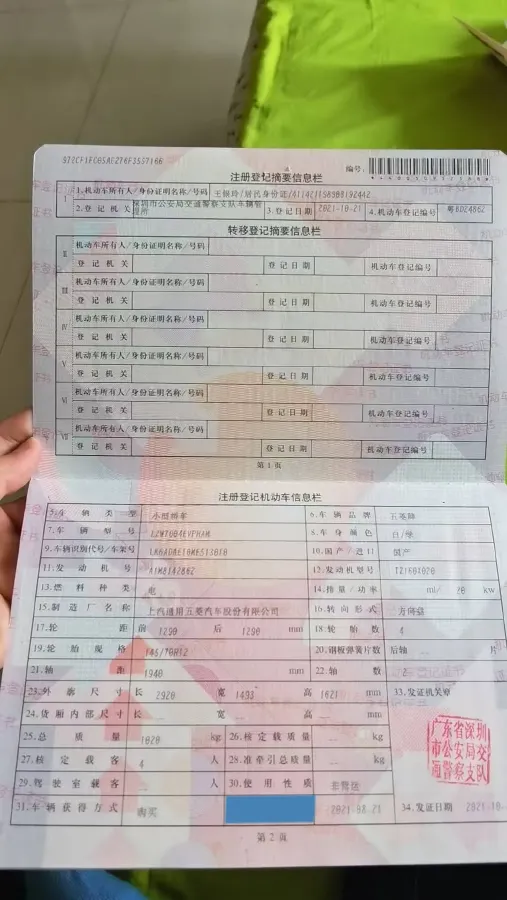 编号:
注册登记摘要信息栏
I 1.机动车所有人/身份证明名称/号码
2.登记机关 深圳市公安局交通警察支队车辆管理所 3.登记日期 2021-10-21 4.机动车登记编号
转移登记摘要信息栏
II 机动车所有人/身份证明名称/号码
登记机关 登记日期 机动车登记编号
III 机动车所有人/身份证明名称/号码
登记机关 登记日期 机动车登记编号
IV 机动车所有人/身份证明名称/号码
登记机关 登记日期 机动车登记编号
V 机动车所有人/身份证明名称/号码
登记机关 登记日期 机动车登记编号
VI 机动车所有人/身份证明名称/号码
登记机关 登记日期 机动车登记编号
VII 机动车所有人/身份证明名称/号码
登记机关 登记日期 机动车登记编号
第1页
注册登记机动车信息栏
5.车辆类型 小型轿车 6.车辆品牌 五菱牌
7.车辆型号 8.车身颜色 白/绿
9.车辆识别代号/车架号 10.国产/进口 国产
11.发动机号 12.发动机型号
13.燃料种类 电 14.排量/功率 ml/ 20 kw
15.制造厂名称 上汽通用五菱汽车股份有限公司 16.转向形式 方向盘
17.轮距 前 1290 后 1290 mm 18.轮胎数 4
19.轮胎规格 145/70R12 20.钢板弹簧片数 后轴 片
21.轴距 1940 mm 22.轴数 2
23.外廓尺寸 长 2920 宽 1493 高 1621 mm 33.发证机关章
24.货厢内部尺寸 长 宽 高 mm
25.总质量 kg 26.核定载质量 kg
27.核定载客 4 人 28.准牵引总质量 kg
29.驾驶室载客 人 30.使用性质 非营运
31.车辆获得方式 购买 34.发证日期 2021-10-
广东省深圳
市公安局交
通警察支队
第2页